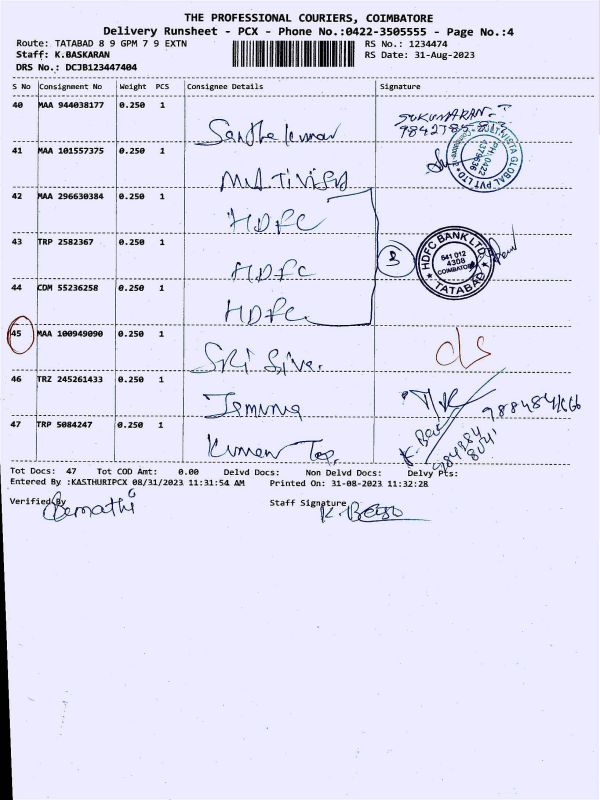 THE PROFESSIONAL COURIERS, COIMBATORE
Delivery Runsheet - PCX - Phone No.:0422-3505555 - Page No.:4
Route: TATABAD 8 9 GPM 7 9 EXTN RS No.: 1234474
Staff: K.BASKARAN RS Date: 31-Aug-2023
DRS No.: DCJB123447404
S No Consignment No Weight PCS Consignee Details Signature
40 MAA 944038177 0.250 1 SUKUMARAN.T
Santha kumar
41 MAA 101557375 0.250 1 VISTA GLOBAL PVT LTD PH: 0422 4379636
MULTIVISTA
42 MAA 296630384 0.250 1
HDFC
43 TRP 2582367 0.250 1 3 HDFC BANK LTD. 641 012 4308 COIMBATORE TATABAD
HDFC
44 COM 55236258 0.250 1
HDFC
45 MAA 100949090 0.250 1 ds
Sri Siva.
46 TRZ 245261433 0.250 1
Jamuna
47 TRP 5084247 0.250 1
Kumar
Tot Docs: 47 Tot COD Amt: 0.00 Delvd Docs: Non Delvd Docs: Delvy Pts:
Entered By :KASTHURIPCX 08/31/2023 11:31:54 AM Printed On: 31-08-2023 11:32:28
Verified By Staff Signature